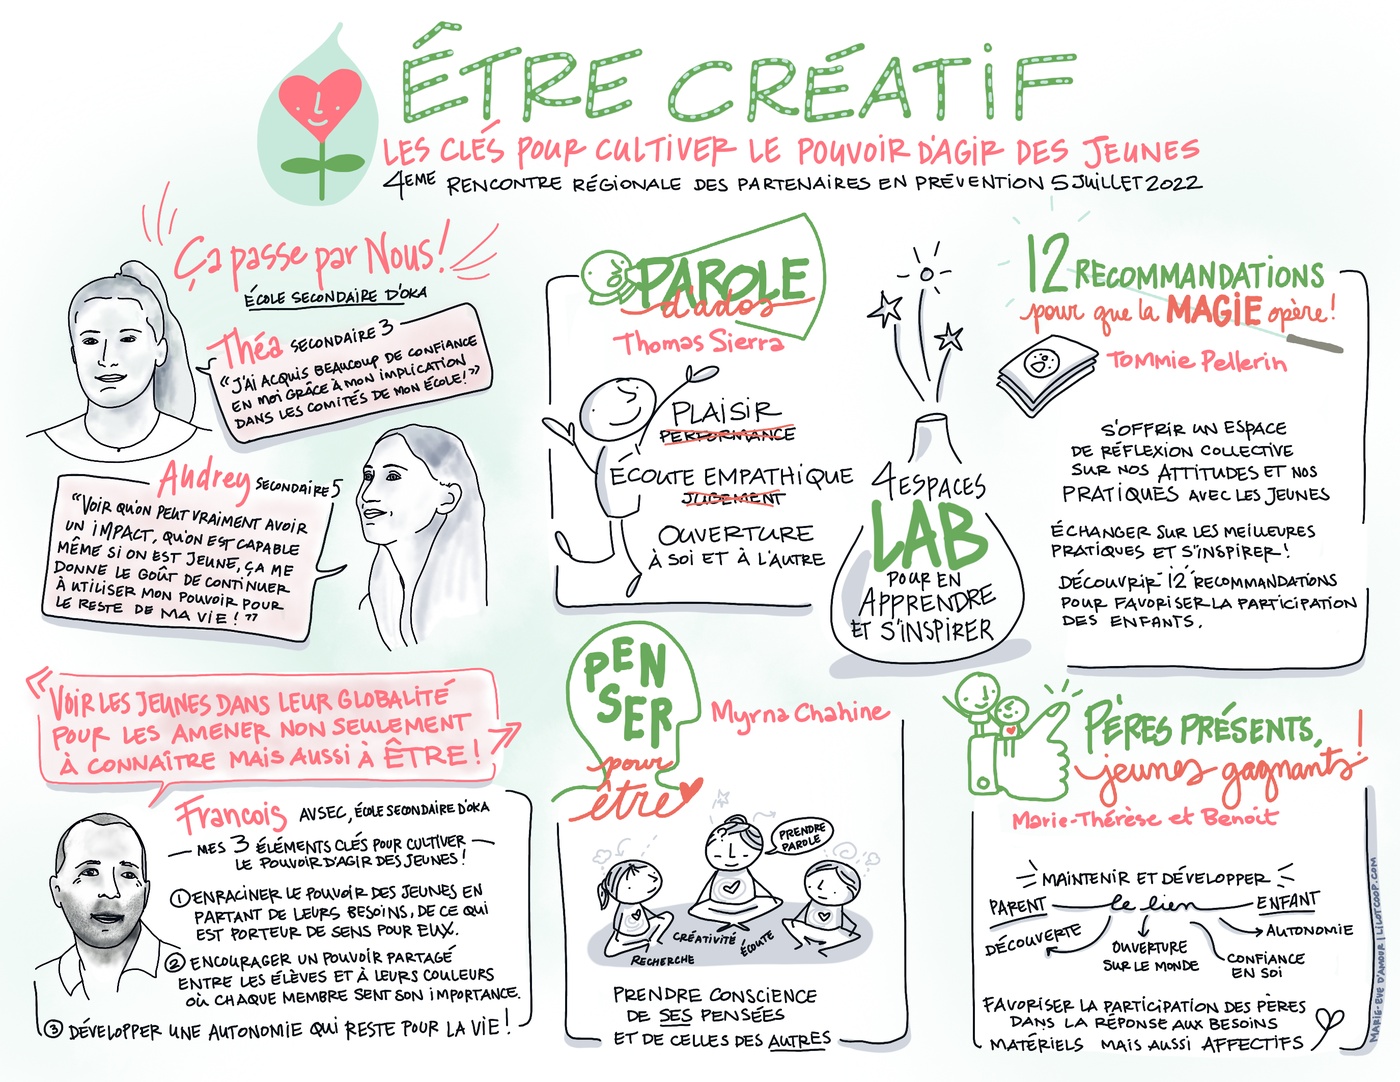 ÊTRE CRÉATIF
LES CLÉS POUR CULTIVER LE POUVOIR D'AGIR DES JEUNES
4EME RENCONTRE RÉGIONALE DES PARTENAIRES EN PRÉVENTION 5 JUILLET 2022
Ça passe par Nous!
ÉCOLE SECONDAIRE D'OKA
Théa SECONDAIRE 3
«J'AI ACQUIS BEAUCOUP DE CONFIANCE
EN MOI GRÂCE À MON IMPLICATION
DANS LES COMITÉS DE MON ÉCOLE!»
Audrey SECONDAIRE 5
"VOIR QU'ON PEUT VRAIMENT AVOIR
UN IMPACT, QU'ON EST CAPABLE
MÊME SI ON EST JEUNE, ÇA ME
DONNE LE GOÛT DE CONTINUER
À UTILISER MON POUVOIR POUR
LE RESTE DE MA VIE!"
«VOIR LES JEUNES DANS LEUR GLOBALITÉ
POUR LES AMENER NON SEULEMENT
À CONNAÎTRE MAIS AUSSI À ÊTRE!»
François AVSEC, ÉCOLE SECONDAIRE D'OKA
MES 3 ÉLÉMENTS CLÉS POUR CULTIVER
LE POUVOIR D'AGIR DES JEUNES!
① ENRACINER LE POUVOIR DES JEUNES EN
PARTANT DE LEURS BESOINS, DE CE QUI
EST PORTEUR DE SENS POUR EUX.
② ENCOURAGER UN POUVOIR PARTAGÉ
ENTRE LES ÉLÈVES ET À LEURS COULEURS
OÙ CHAQUE MEMBRE SENT SON IMPORTANCE.
③ DÉVELOPPER UNE AUTONOMIE QUI RESTE POUR LA VIE!
PAROLE
d'ados
Thomas Sierra
PLAISIR
PERFORMANCE
ECOUTE EMPATHIQUE
JUGEMENT
OUVERTURE
À SOI ET À L'AUTRE
4 ESPACES
LAB
POUR EN
APPRENDRE
ET S'INSPIRER
12 RECOMMANDATIONS
pour que la MAGIE opère!
Tommie Pellerin
S'OFFRIR UN ESPACE
DE RÉFLEXION COLLECTIVE
SUR NOS ATTITUDES ET NOS
PRATIQUES AVEC LES JEUNES
ÉCHANGER SUR LES MEILLEURES
PRATIQUES ET S'INSPIRER!
DÉCOUVRIR 12 RECOMMANDATIONS
POUR FAVORISER LA PARTICIPATION
DES ENFANTS.
PEN
SER
pour
être
Myrna Chahine
PRENDRE
PAROLE
CRÉATIVITÉ
ÉCOUTE
RECHERCHE
PRENDRE CONSCIENCE
DE SES PENSÉES
ET DE CELLES DES AUTRES
PÈRES PRÉSENTS,
jeunes gagnants!
Marie-Thérèse et Benoit
MAINTENIR ET DÉVELOPPER
PARENT le lien ENFANT
DÉCOUVERTE
OUVERTURE
SUR LE MONDE
CONFIANCE
EN SOI
AUTONOMIE
FAVORISER LA PARTICIPATION DES PÈRES
DANS LA RÉPONSE AUX BESOINS
MATÉRIELS MAIS AUSSI AFFECTIFS
MARIE-EVE D'AMOUR | LILOTCOOP.COM